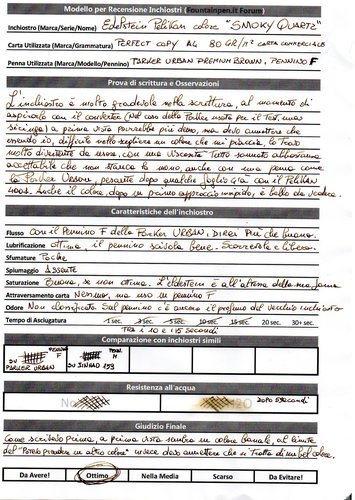 Modello per Recensione Inchiostri Fountainpen.it Forum
Inchiostro (Marca/Serie/Nome) Edelstein Pelikan colore "SMOKY QUARTZ"
Carta Utilizzata (Marca/Grammatura) PERFECT COPY A4 80 GR/M² CARTA COMMERCIALE
Penna Utilizzata (Marca/Modello/Pennino) PARKER URBAN PREMIUM BROWN. PENNINO F
Prova di scrittura e Osservazioni
L'inchiostro è molto gradevole nella scrittura, al momento di
aspirarlo con il converter (nel caso della Parker usata per il test, una
siringa) a prima vista potrebbe più denso, ma devo ammettere che
essendo io, difficile nello scegliere un colore che mi piaccia, lo trovo
molto divertente da usare, con una viscosità tutto sommato abbastanza
accettabile che non stanca la mano anche con una penna come
la Parker Urban, pesante dopo qualche foglio già con il Pelikan
4001. Anche il colore, dopo un primo approccio impavido, è bello da vedere.
Caratteristiche dell'inchiostro
Flusso con il pennino F della Parker URBAN, direi più che buono.
Lubrificazione ottima, il pennino scivola bene. Scorrevole e libero.
Sfumature Poche
Spiumaggio Assente
Saturazione Buona, se non ottima. L'Edelstein è all'altezza della sua fama
Attraversamento carta Nessuno, ma uso un pennino F
Odore Non classificato. Sul pennino c'è ancora il profumo del vecchio inchiostro
Tempo di Asciugatura 1 sec. 3 sec. 5 sec. 10 sec. 15 sec. 20 sec. 30+ sec.
TRA I 10 E I 15 SECONDI
Comparazione con inchiostri simili
PENN. F PENN. M
SU PARKER URBAN SU JINHAO 159
Resistenza all'acqua
No H2O DOPO 5 SECONDI
Giudizio Finale
Come scrivevo prima, a prima vista sembra un colore banale, al limite
del "Potevo prendere un altro colore" invece devo ammettere che si tratta di un bel colore.
Da Avere! Ottimo Nella Media Scarso Da Evitare!